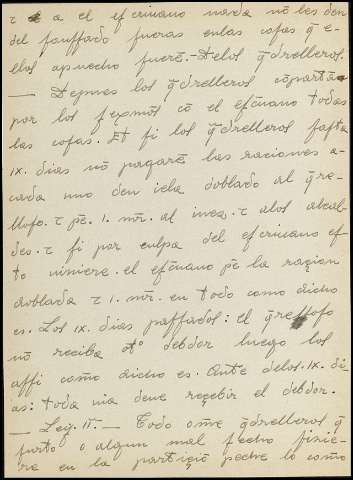 τ a el escriuano nada nõ les den
del fonssado fueras enlas cosas q̃ e-
llos apuecho fuerẽ.- Delos q̃drelleros.
— Depues los q̃drelleros cõpartã
por los sexmos cõ el escriuano todas
las cosas. Et si los q̃drelleros fasta
ix. dias nõ pagarẽ las raciones a-
cada uno den iela doblada al q̃re-
lloso. τ pẽ. 1. mr̃. al iuez. τ alos alcal-
des. τ si por culpa del escriuano es-
to uiniere. el escriuano pẽ la razion
doblada τ 1. mr̃. en todo como dicho
es. Los ix. dias passados: el q̃relloso
nõ reciba otº debdor luego los
assi como dicho es. Ante delos. ix. di-
as: toda uia deue reçebir el debdor.
— Ley. II.— Todo ome q̃drelleros q̃
furto o algun mal fecho fizie-
re en la partiçiõ peche lo como